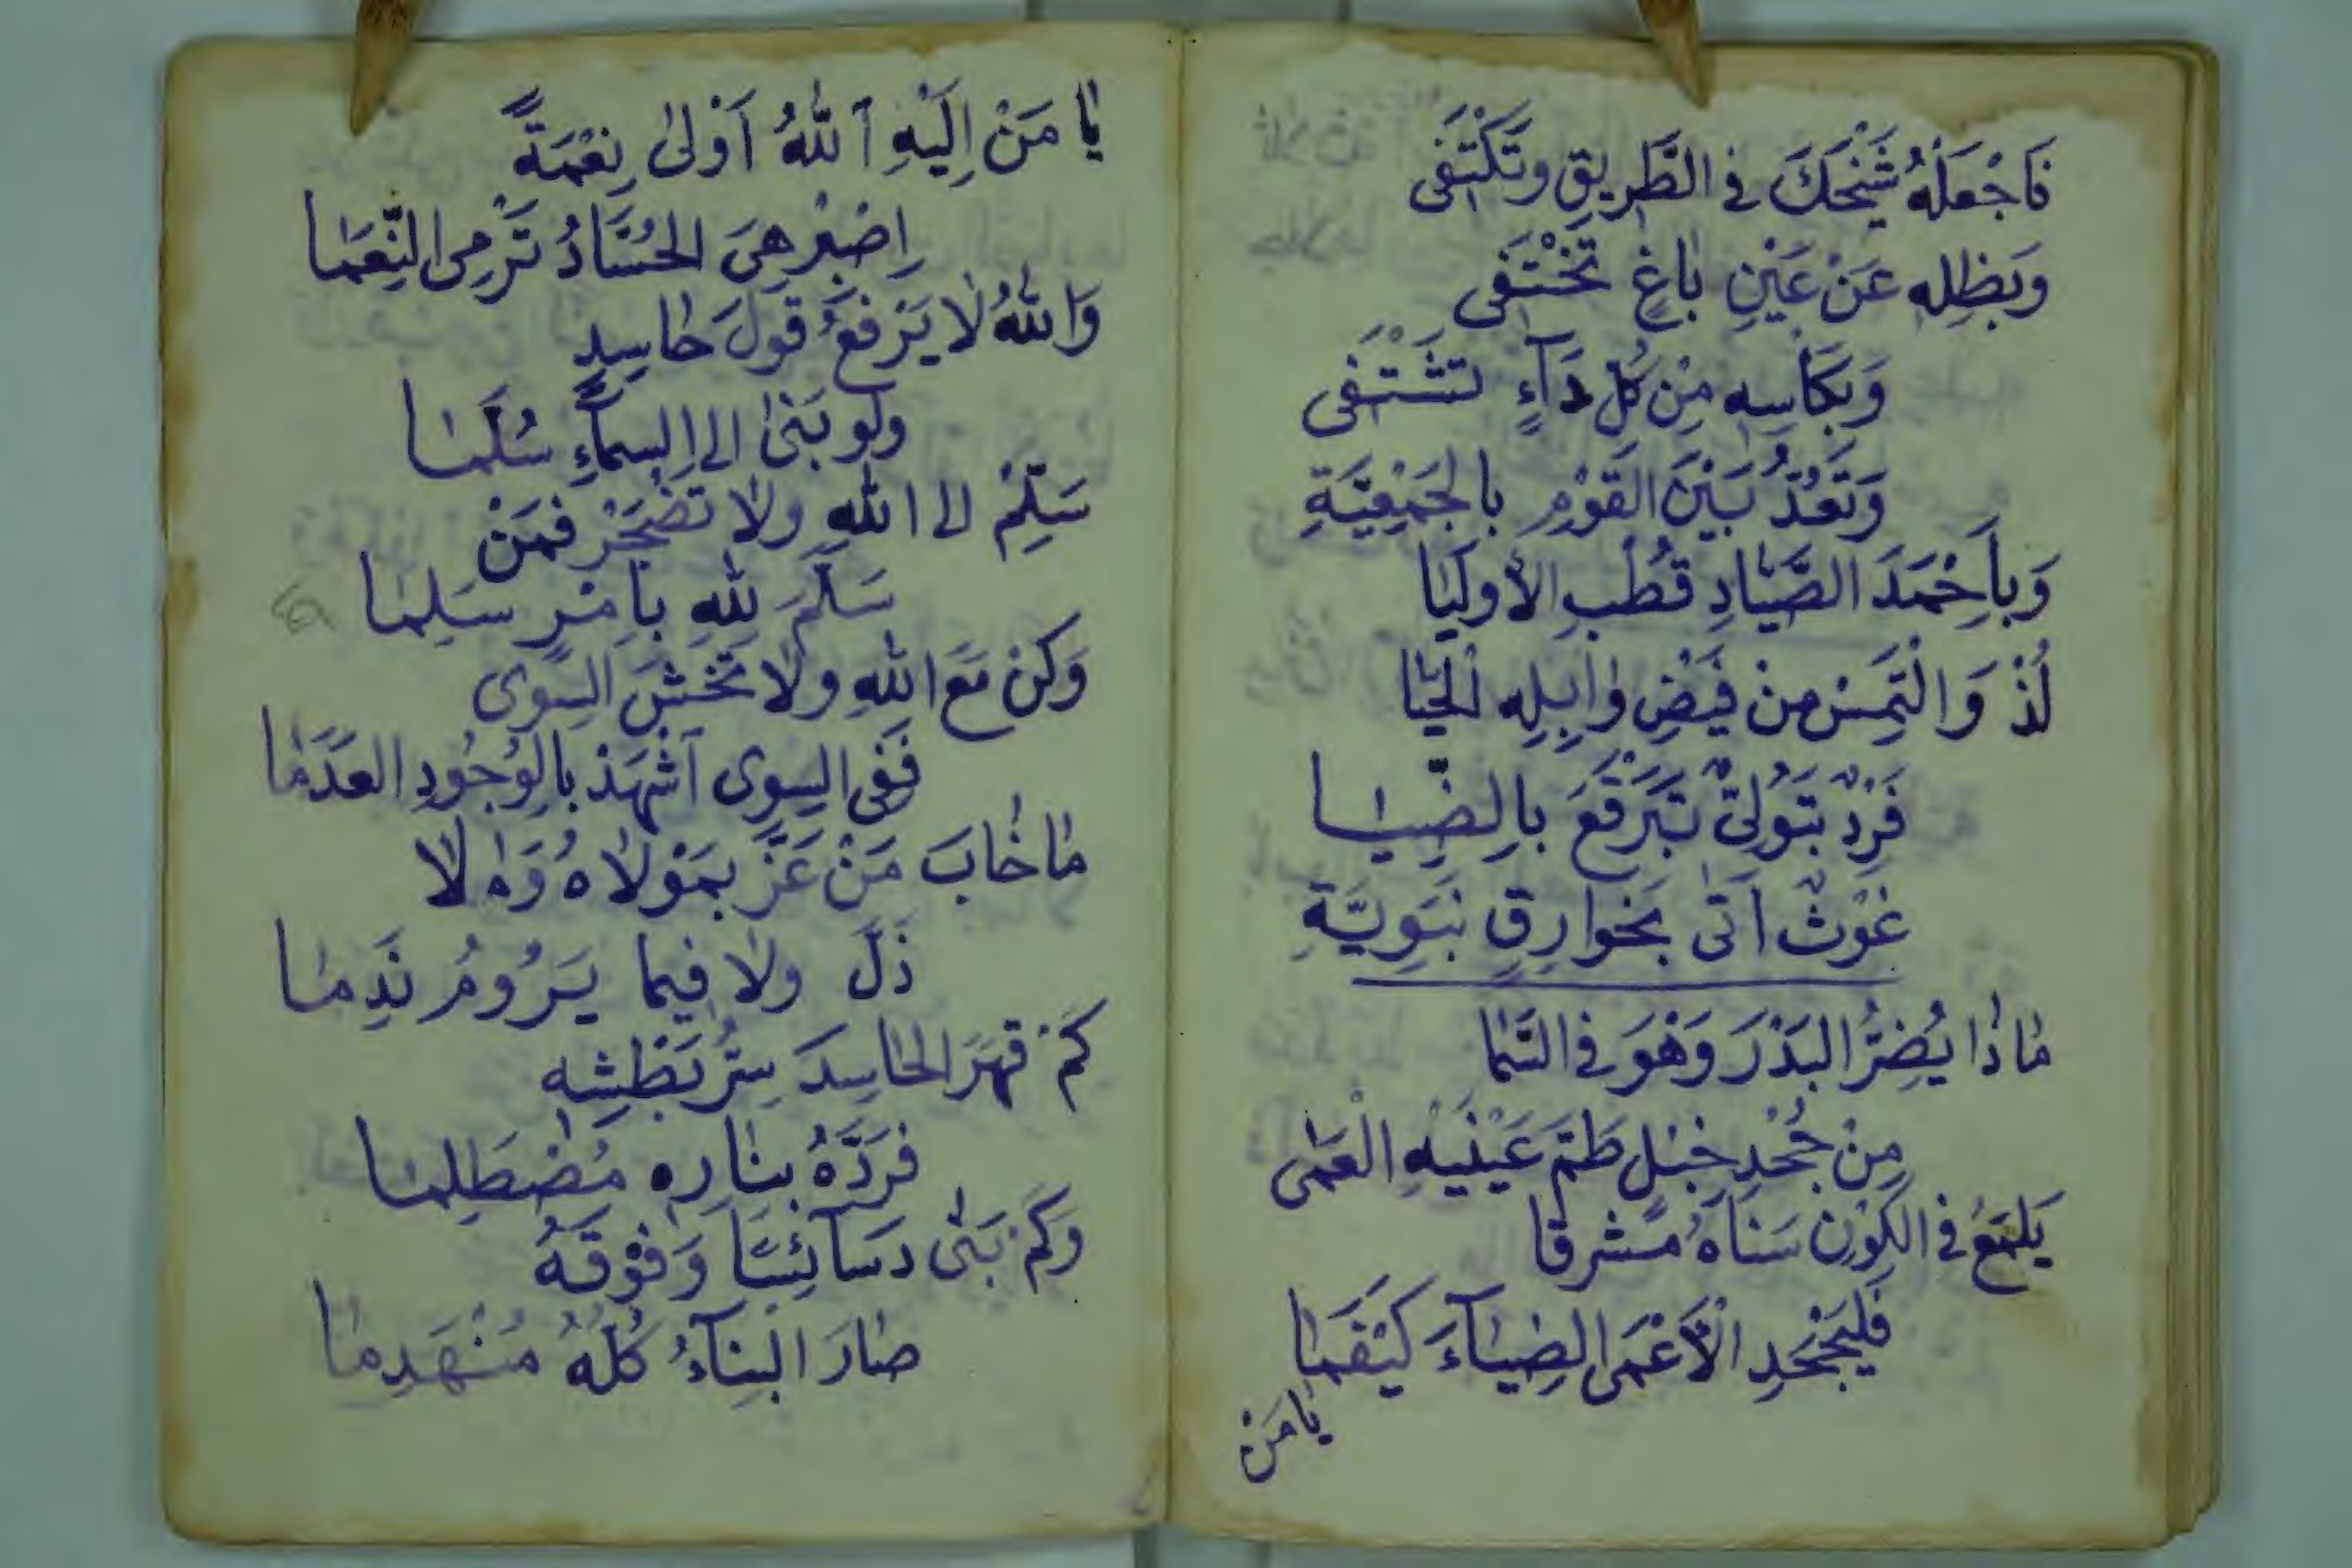 فَاجْعَلْهُ شَيْخَكَ في الطَّرِيقِ وتَكْتَفى
وَبِظِلِهِ عَنْ عَيْنِ بَاغٍ تَخْتَفى
وَبِكَاسِهِ مِنْ كُلِ دَآءٍ تَشْتَفى
وَتُعَدُّ بَيْنَ القَوْمِ بالجَمْعِيَّةِ
وَبِأَحْمَدَ الصَّيَّادِ قُطْبِ الأوليَا
لُذْ وَالْتَمِسْ مِنْ فَيْضِ وَابِلِهِ الْحَيَا
فَرْدٌ بَتُولِىٌّ تَبَرْقَعَ بِالضِّيَا
غَوْثٌ اَتى بِخَوارِقٍ نَبَوِيَّةِ
مَاذَا يُضِرُّ البَدْرَ وَهْوَ في السَّمَا
مِنْ جَحْدِ خِبْلٍ طَمَّ عَيْنَيْهِ الْعَمٰى
يَلْمَعُ في الكَوْنِ سَنَاهُ مُشرقا
فَلْيَجْحَدِ الْأَعْمَى الضِيَآءَ كَيْفَمَا
يَا مَنْ
يَا مَنْ اِلَيْهِ ٱللّٰهُ اَوْلىٰ نِعْمَةً
اِصْبِرْ هِىَ الحُسَّادُ تَرْمِى النِّعَمَا
وَاللّٰهُ لَا يَرْفَعُ قَوْلَ حَاسِدٍ
ولو بَنىٰ الى السمآءِ سُلَّمَا
سَلِّمْ الى اللّٰهِ ولا تَضْجَرْ فَمَنْ
سَلَّمَ لِلّٰهِ بِأَمْرٍ سَلِمَا
وَكُنْ مَعَ اللّٰهِ ولا تَخْشَ السِوى
فَفى السِوى ٱشْهَدْ بِالوُجُودِ العَدَمَا
مَا خَابَ مَنْ عَزَّ بِمَوْلاهُ وَلا
ذَلَّ ولا فِيما يَرُومُ نَدِمَا
كَمْ قَهَرَ الحَاسِدَ سِرُّ بَطْشِهِ
فَرَدَّهُ بِنَارِهِ مُضْطَلِمَا
وَكَمْ بَنٰى دسَآئِسًا وَفَوْقَهُ
صَارَ البِنَآءُ كُلُّهُ مُنْهَدِمَا